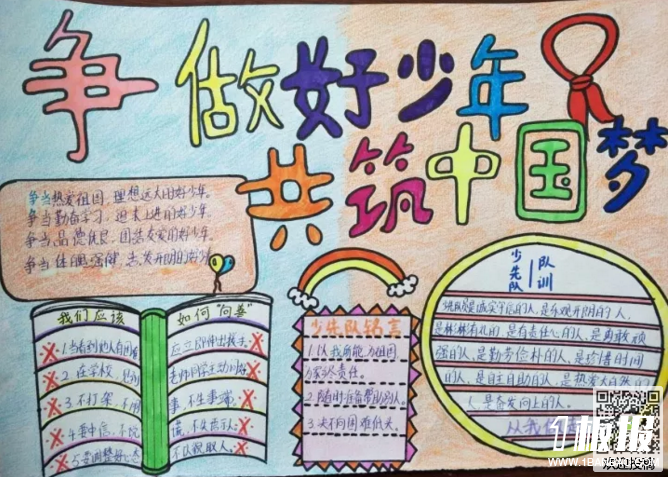 争做好少年
共筑中国梦
争当热爱祖国,理想远大的好少年。
争当勤奋学习,追求上进的好少年。
争当品德优良,团结友爱的好少年。
争当体魄强健,活泼开朗的好少
我们应该
如何"向善"
1.当看到他人有困难
应立即伸出援手。
2.在学校,见到
老师同学主动问好
3.不打架,不
事,不生事端。
4.要守信,不说
谎,不
5.要调整好心态
不以貌取人。
少先队铭言
1.以我所能为祖国
为家尽责任。
2.随时准备帮助别人。
3.决不向困难低头。
少先队
队训
诚实守信的人,是乐观开朗的人,
是彬彬有礼的,是有责任心的人,是勇敢顽
强的人,是勤劳俭朴的人,是珍惜时间
的人,是自主自助的人,是热爱大自然的
人,是奋发向上的人。
从我
1板报
WWW.1BANBAO.COM
欢迎投稿